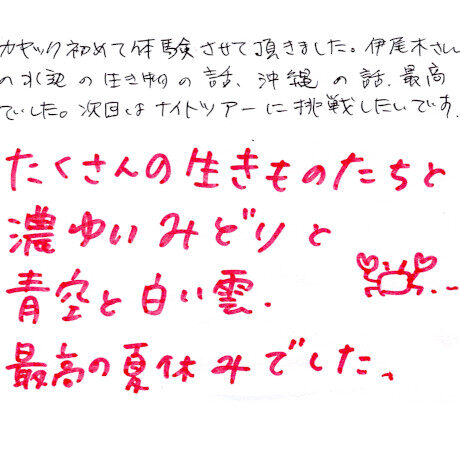 カヤック初めて体験させて頂きました。伊尾木さん
の水辺の生き物の話、沖縄の話、最高
でした。次回はナイトツアーに挑戦したいです。
たくさんの生きものたちと
濃ゆいみどりと
青空と白い雲、
最高の夏休みでした、